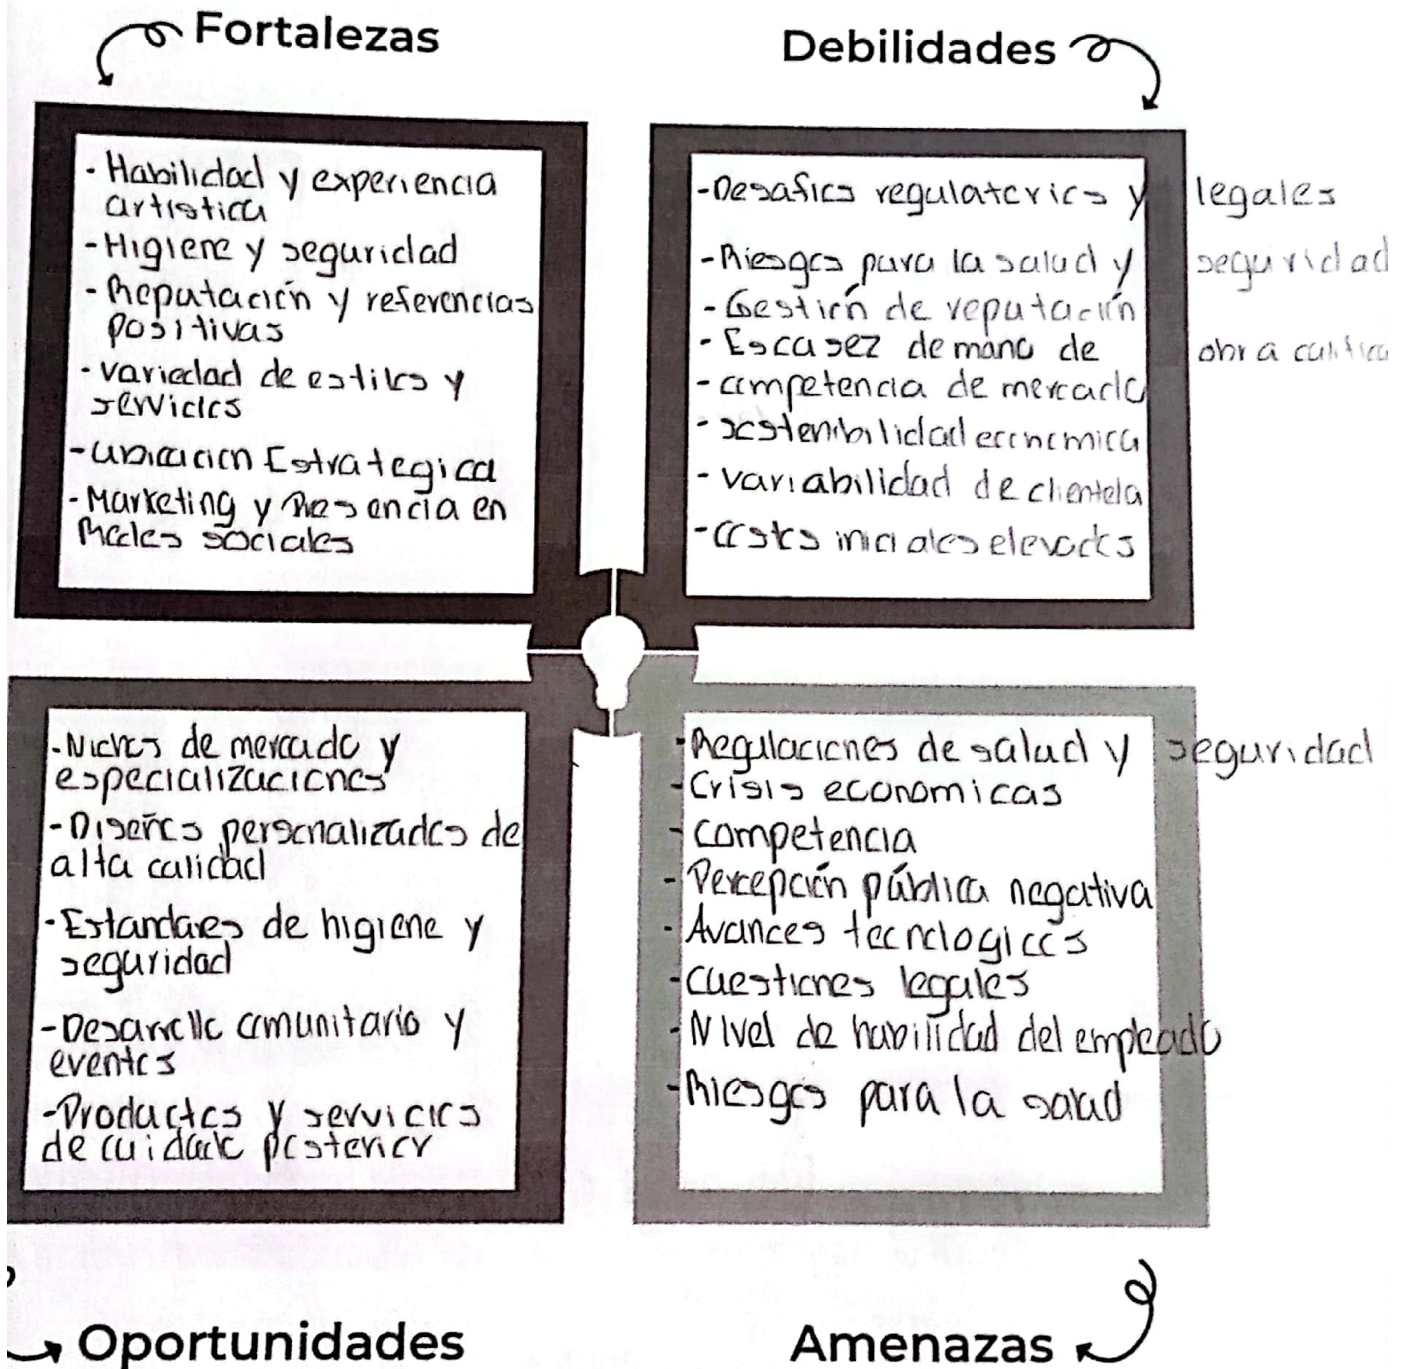 Fortalezas
- Habilidad y experiencia
artistica
- Higiene y seguridad
- Reputación y referencias
positivas
- variedad de estilos y
servicios
- ubicacion Estrategica
- Marketing y Presencia en
Redes sociales
Debilidades
- Desafios regulatorios y legales
- Riesgos para la salud y seguridad
- Gestión de reputación
- Escasez de mano de obra
- competencia de mercado
- sostenibilidad economica
- variabilidad de clientela
- costos iniciales elevados
- Nichos de mercado y
especializaciones
- Diseños personalizados de
alta calidad
- Estandares de higiene y
seguridad
- Desarrollo comunitario y
eventos
- Productos y servicios
de cuidado posterior
Oportunidades
- Regulaciones de salud y seguridad
- Crisis economicas
- competencia
- Percepción pública negativa
- Avances tecnologicos
- cuestiones legales
- Nivel de habilidad del empleado
- Riesgos para la salud
Amenazas